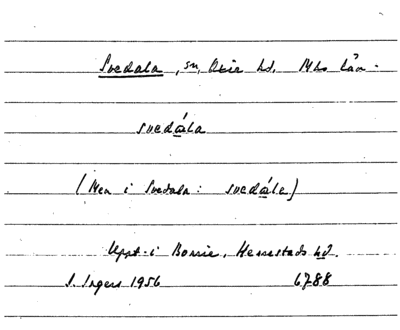 Svedala, sn, Oxie hd. Mhs län.
svedála
(Men i Svedala: svedále)
Uppt. i Borrie, Herrestads hd.
I. Ingers 1956 6788